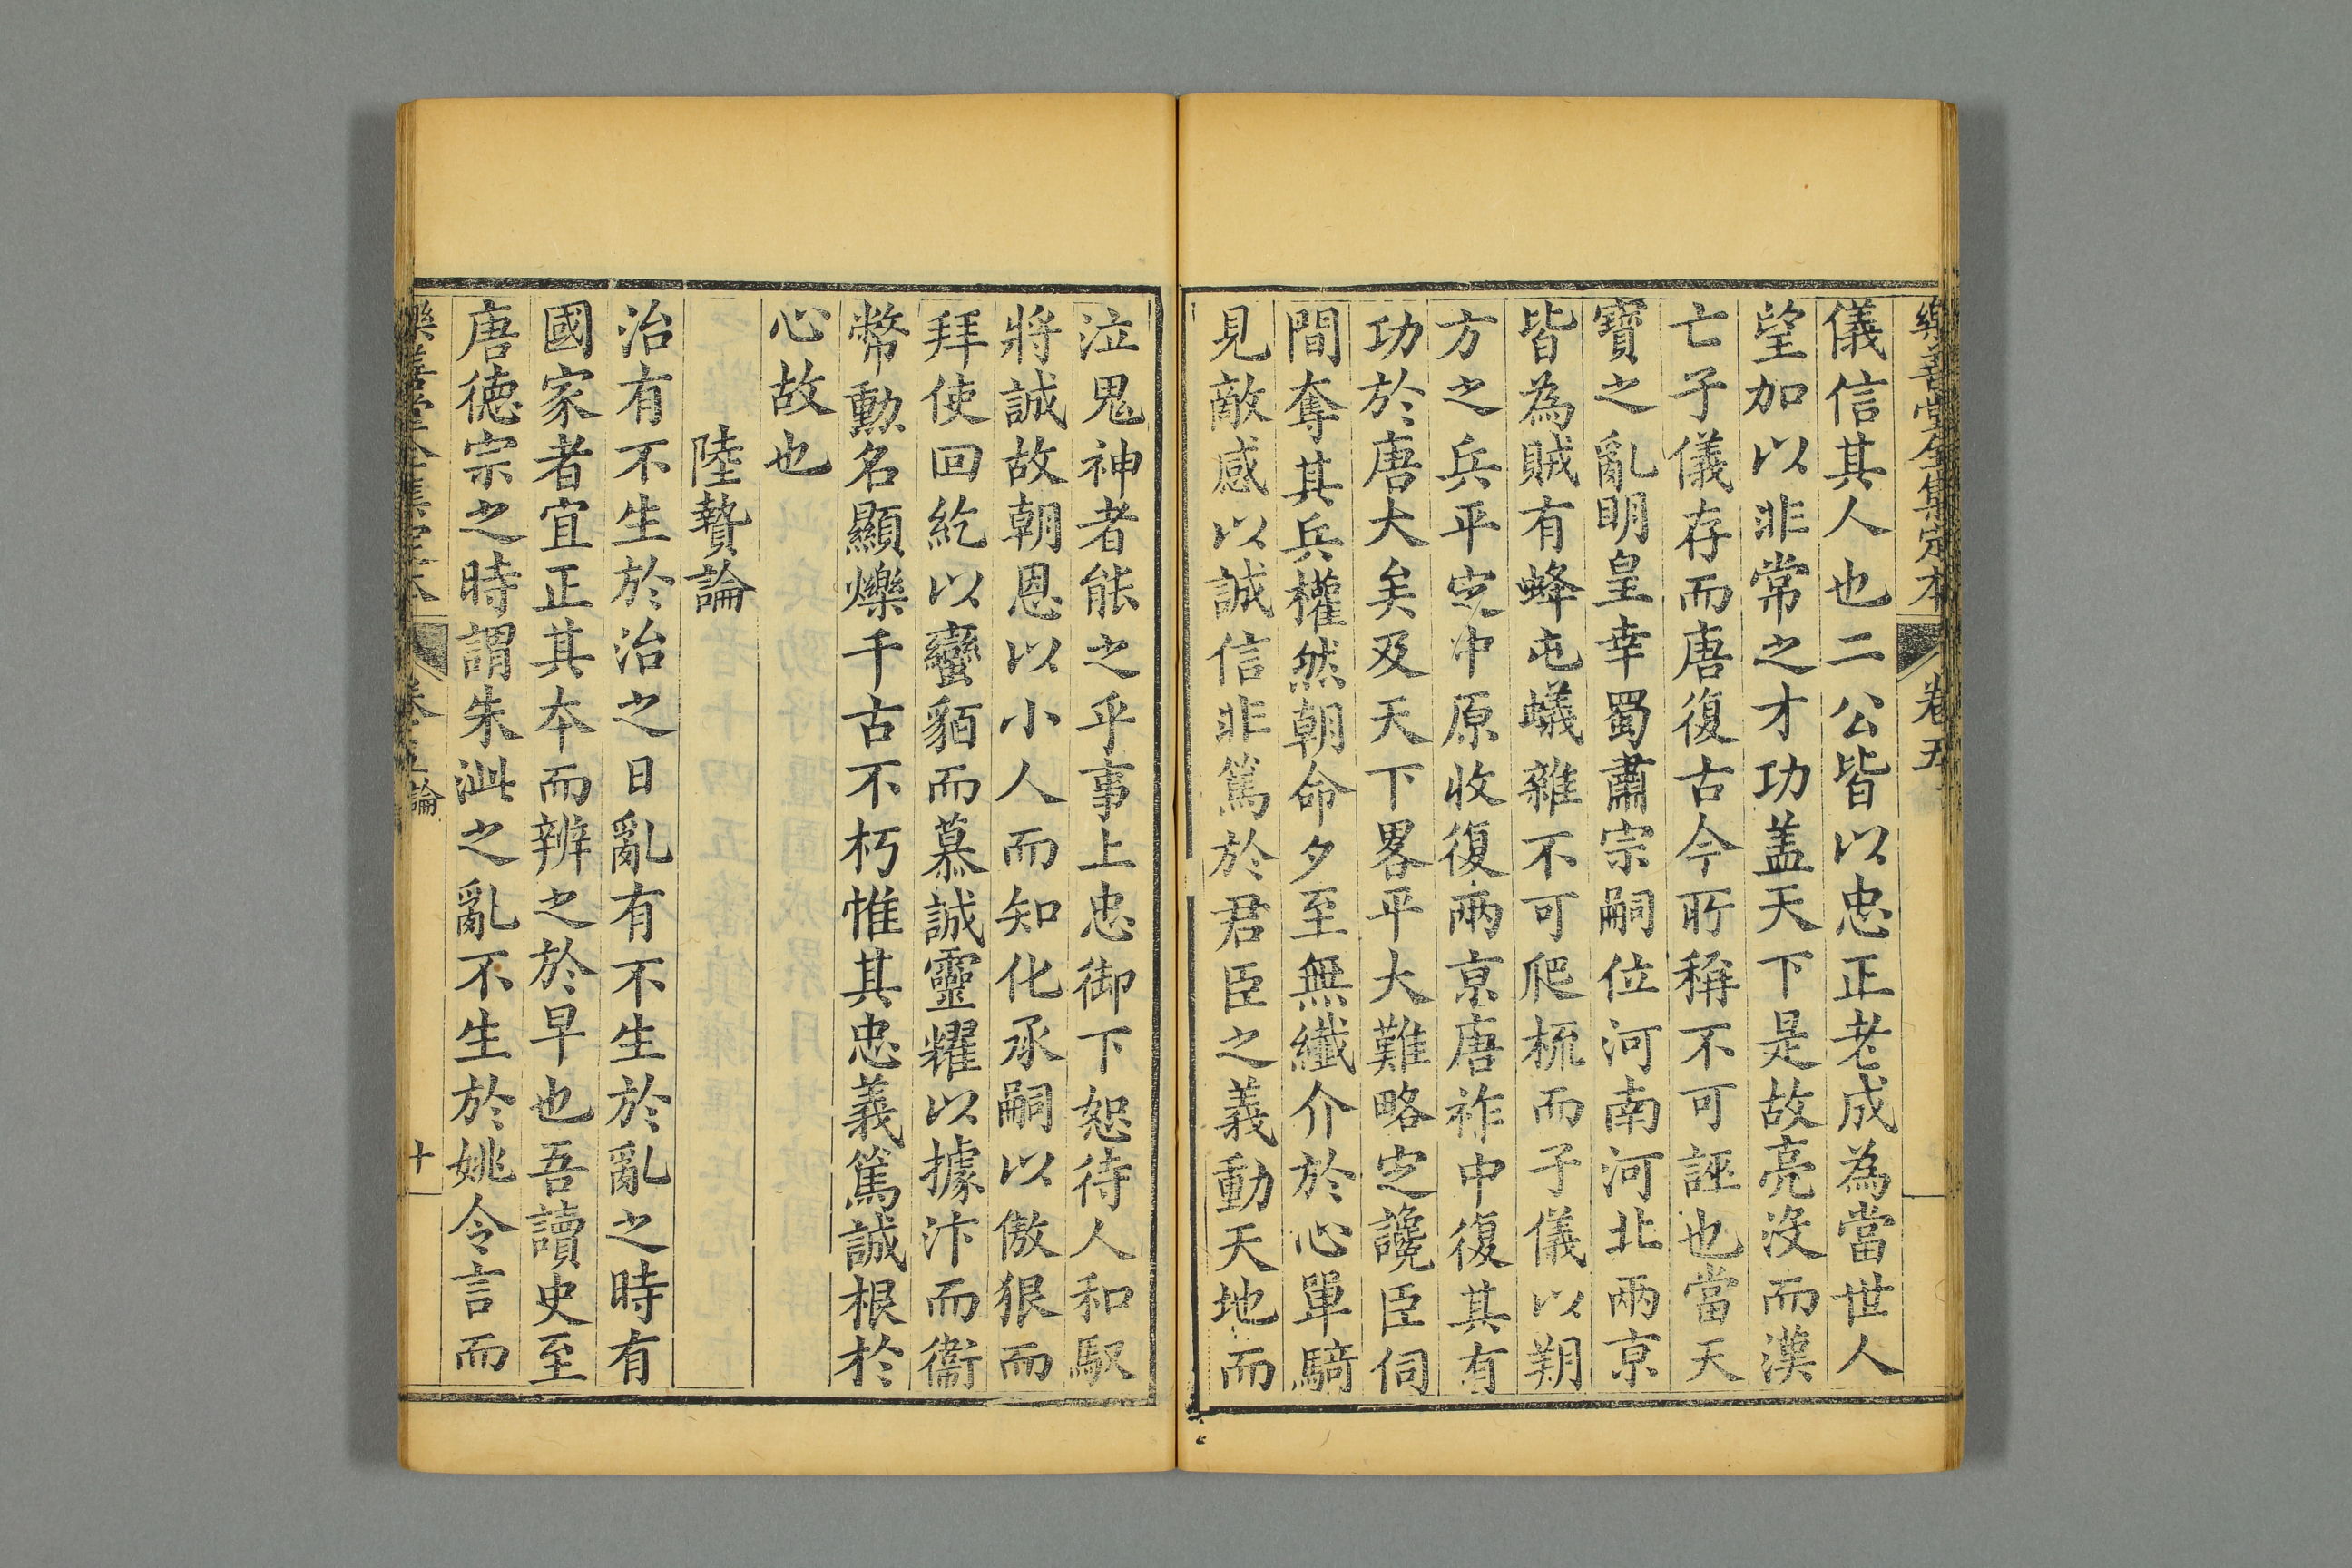 樂善堂全集定本 卷五
儀信其人也二公皆以忠正老成為當世人
望加以非常之才功盖天下是故亮沒而漢
亡子儀存而唐復古今所稱不可誣也當天
寶之亂明皇幸蜀肅宗嗣位河南河北兩京
皆為賊有蜂屯蟻雜不可爬梳而子儀以朔
方之兵平定中原收復兩京唐祚中復其有
功於唐大矣及天下畧平大難略定讒臣伺
間奪其兵權然朝命夕至無纖介於心單騎
見敵感以誠信非篤於君臣之義動天地而
泣鬼神者能之乎事上忠御下恕待人和馭
將誠故朝恩以小人而知化承嗣以傲狠而
拜使回紇以蠻貊而慕誠靈耀以據汴而衞
幣勲名顯爍千古不朽惟其忠義篤誠根於
心故也
陸贄論
治有不生於治之日亂有不生於亂之時有
國家者宜正其本而辨之於早也吾讀史至
唐德宗之時謂朱泚之亂不生於姚令言而
樂善堂全集定本 卷五論 十